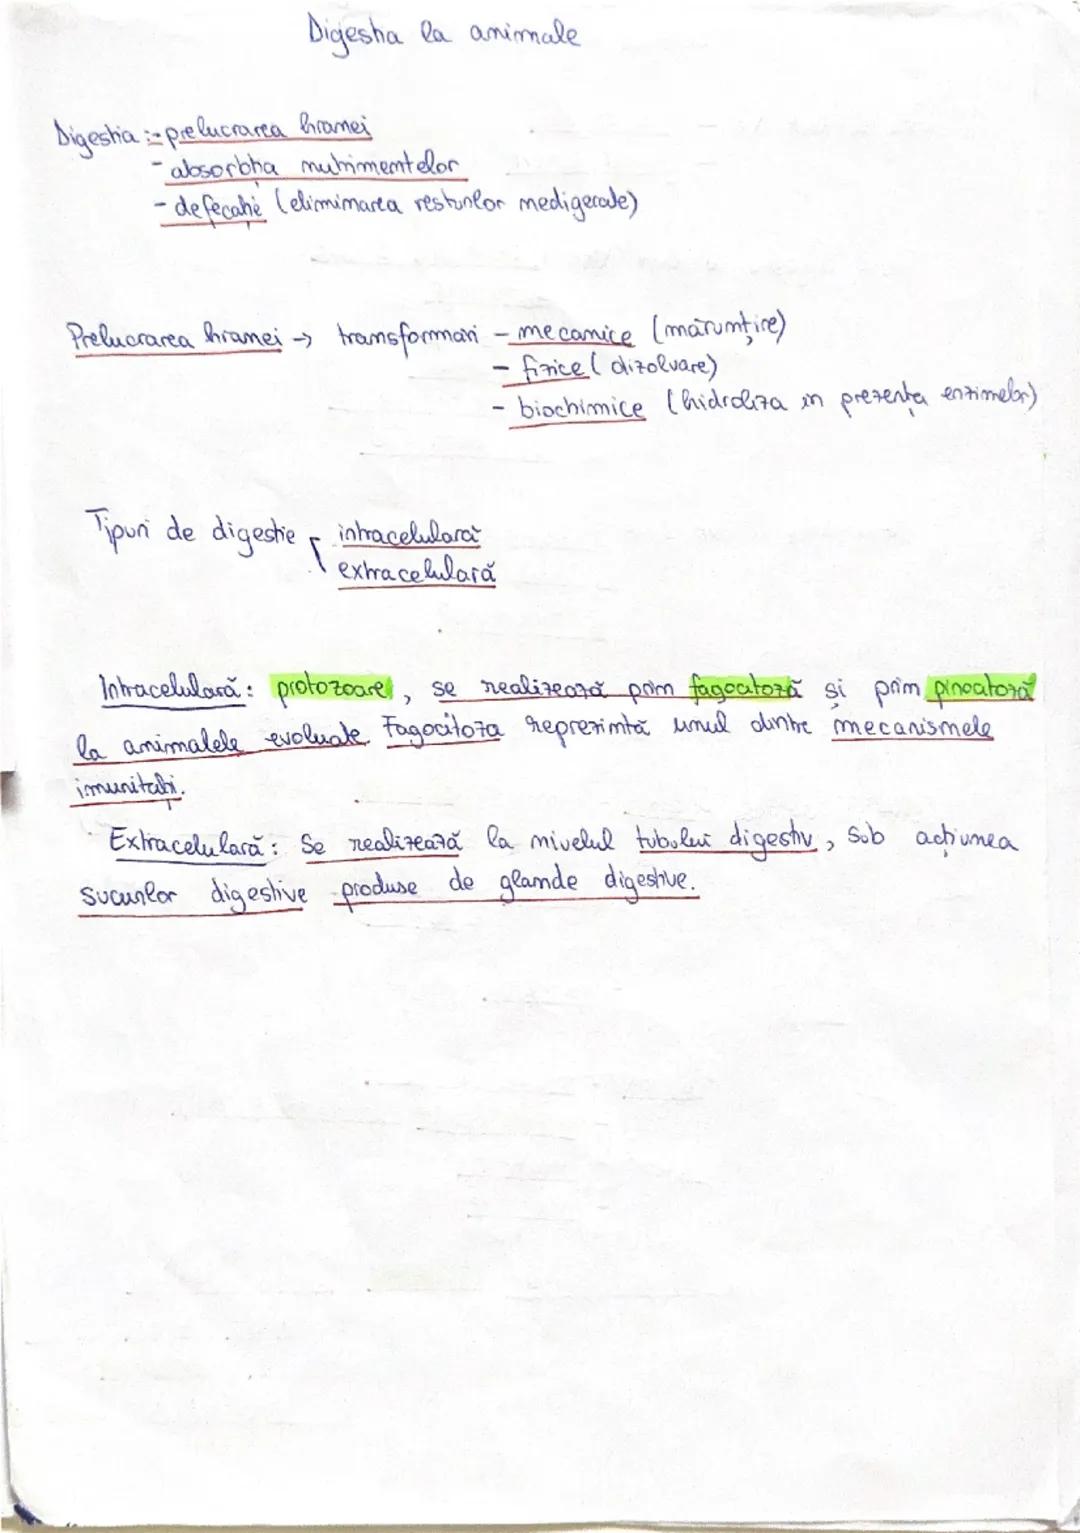 Digestia la animale
Digestia :- prelucrarea hranei
- absorbția nutrimentelor
- defecație (eliminarea resturilor nedigerate)
Prelucrarea hranei → transformări - mecanice (mărunțire)
- fizice (dizolvare)
- biochimice (hidroliza in prezența enzimelor)
Tipuri de digestie intracelulară
extracelulară
Intracelulară: protozoare, se realizează prin fagocitoză și prin pinocitoză
la animalele evoluate. Fagocitoza reprezintă unul dintre mecanismele
imunității.
Extracelulară: Se realizează la nivelul tubului digestiv, sub acțiunea
sucurilor digestive produse de glande digestive.